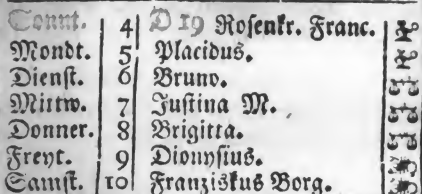 Sonnt. 4 D 19 Rosenkr. Franc.
Mondt. 5 Placidus.
Dienst. 6 Bruno.
Mittw. 7 Justina M.
Donner. 8 Brigitta.
Freyt. 9 Dionysius.
Samst. 10 Franziskus Borg.